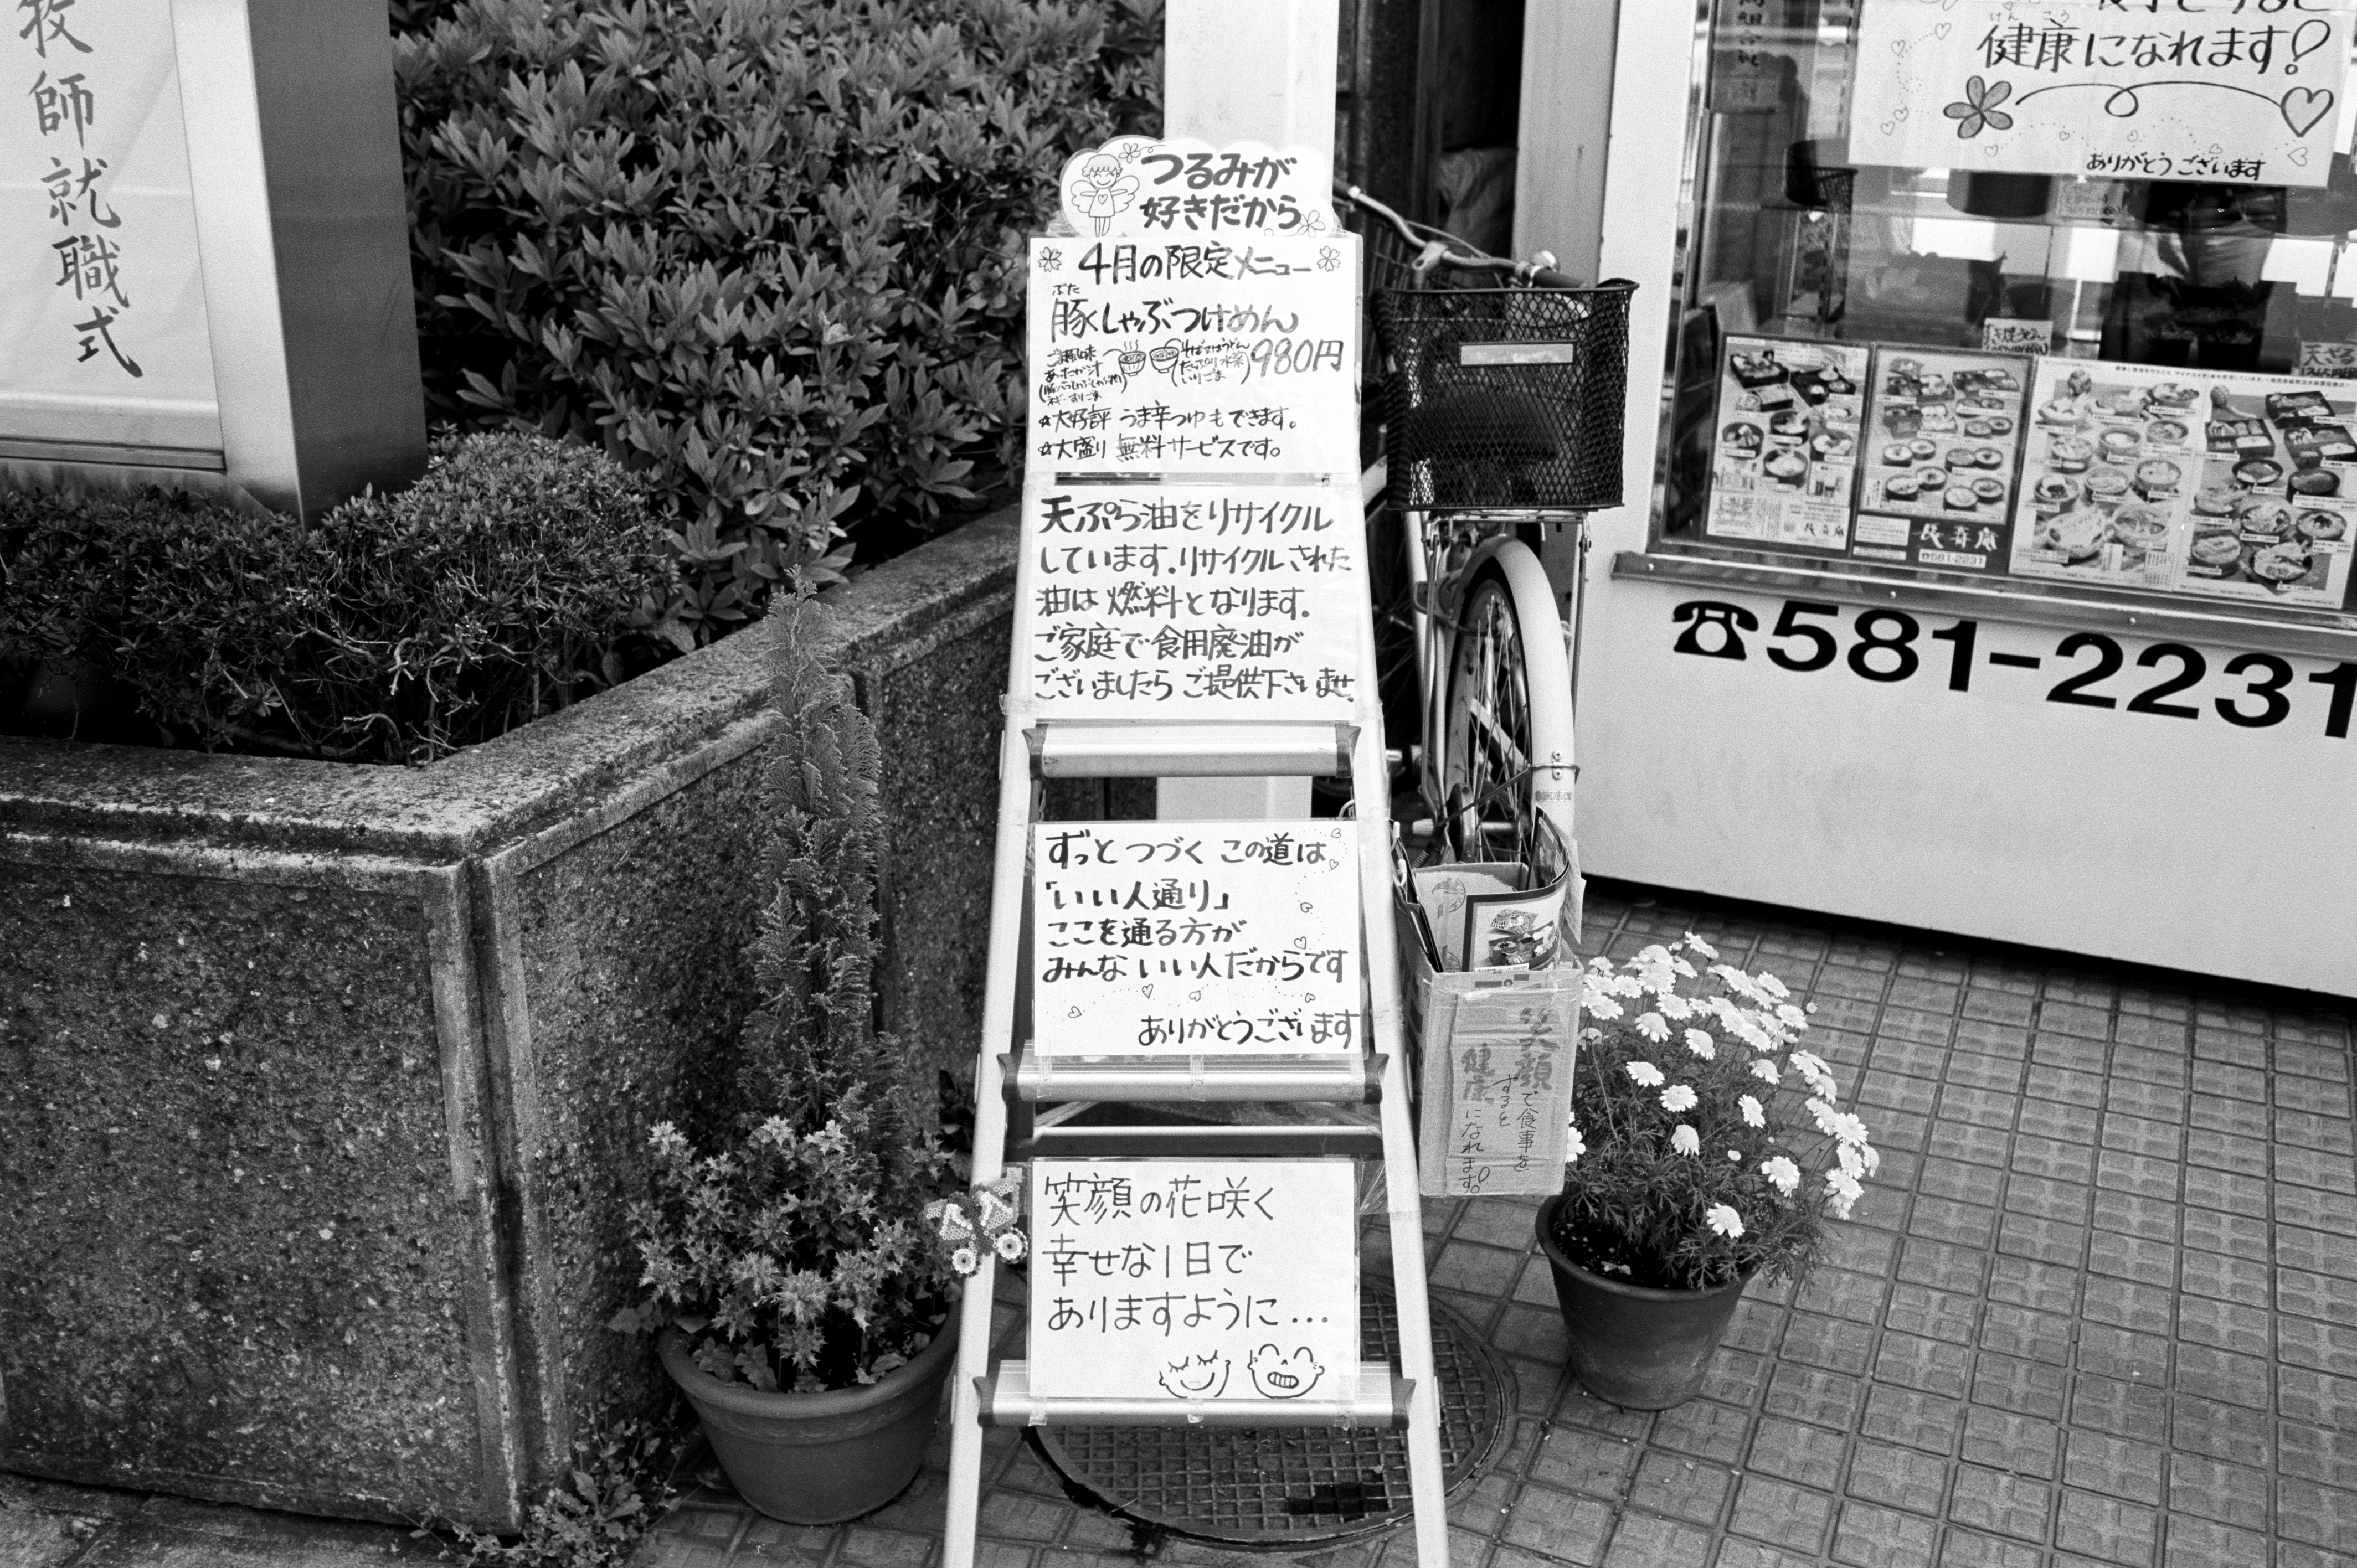 牧師就職式
つるみが
好きだから
4月の限定メニュー
ぶた
豚しゃぶつけめん
980円
あったか汁
ネギ・すりごま
そばまたはうどん
いりごま
☆大好評 うま辛つゆもできます。
☆大盛り 無料サービスです。
天ぷら油をリサイクル
しています。リサイクルされた
油は燃料となります。
ご家庭で食用廃油が
ございましたらご提供下さいませ。
ずっとつづくこの道は
「いい人通り」
ここを通る方が
みんないい人だからです
ありがとうございます
笑顔の花咲く
幸せな1日で
ありますように…
笑顔で食事を
すると
健康になれます。
けんこう
健康になれます!
ありがとうございます
☎581-2231
☎581-2231